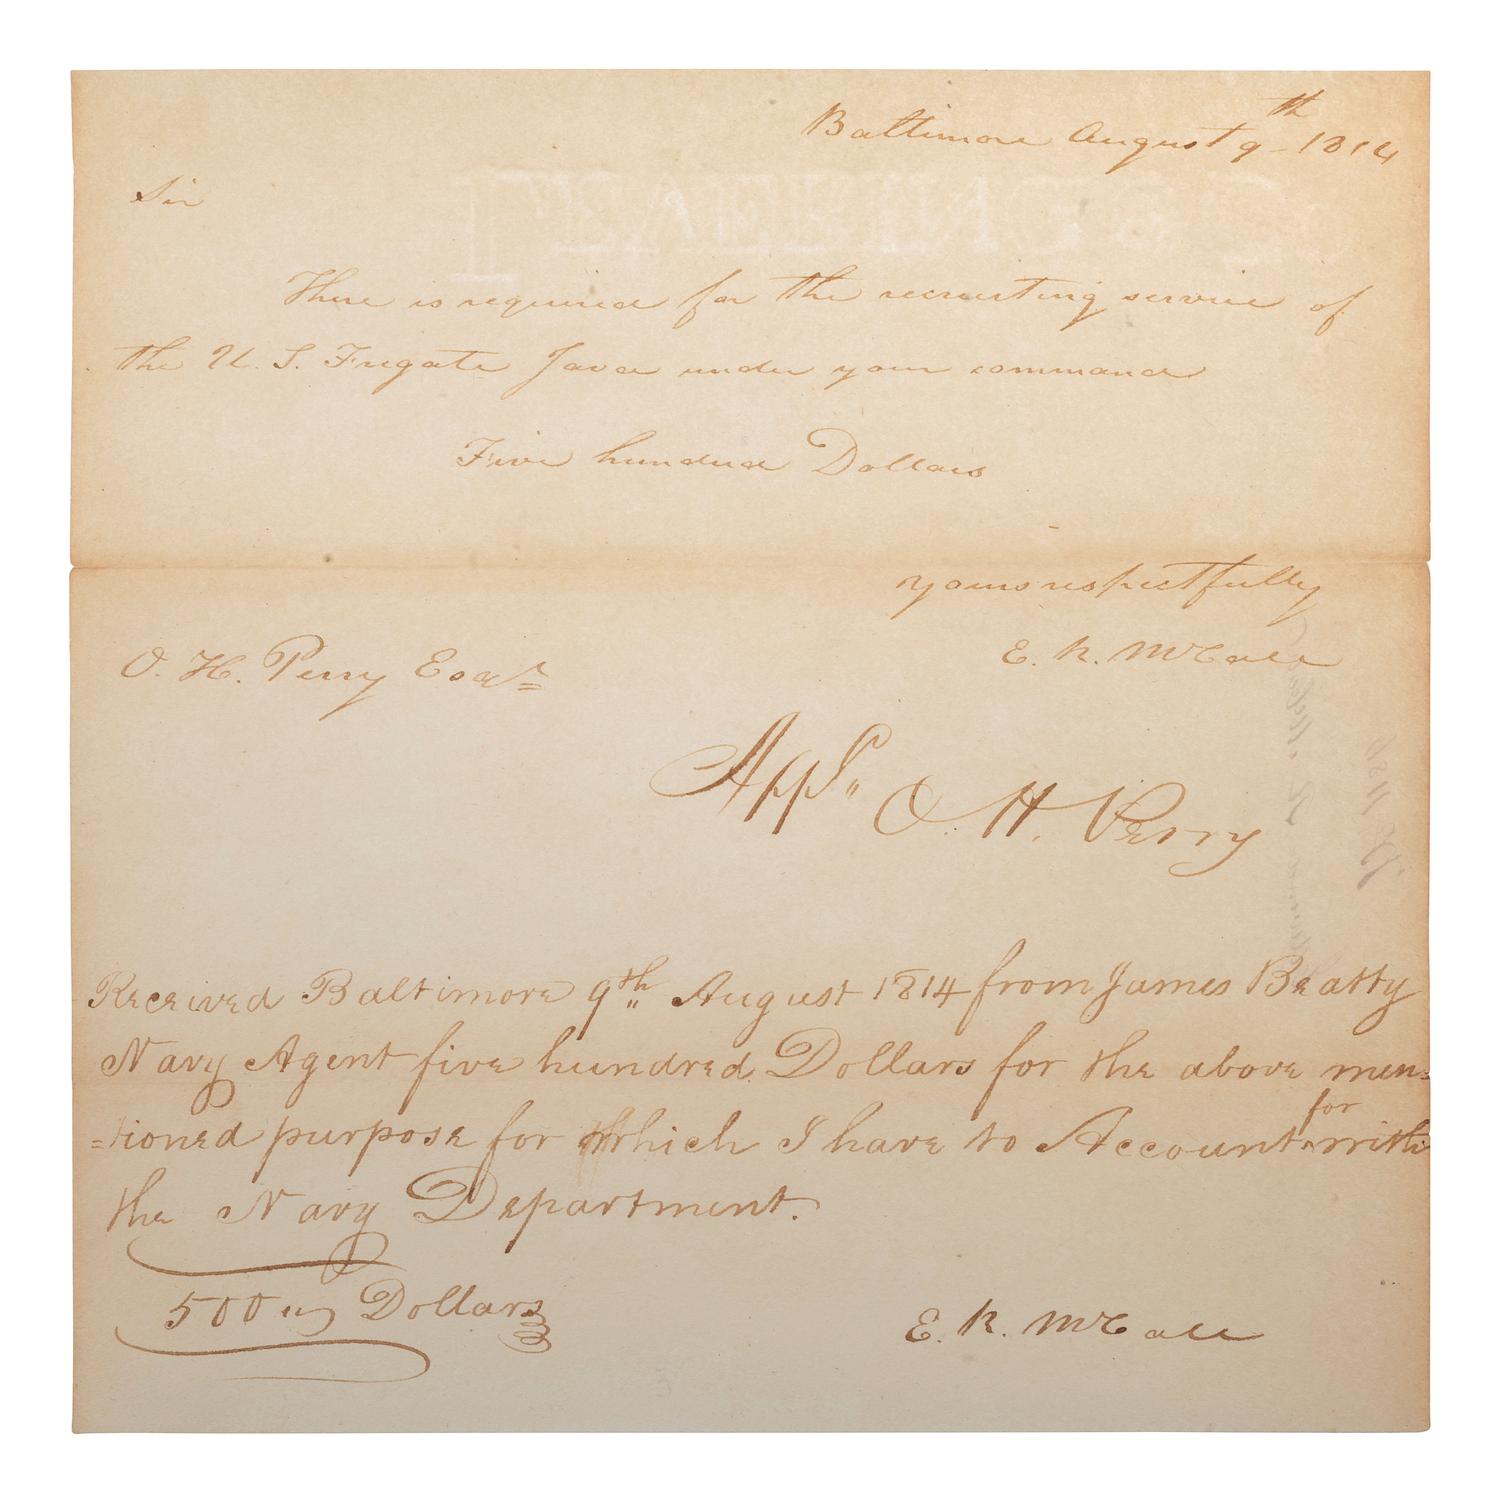 Baltimore August 9th 1814
Sir
There is required for the recruiting service of
the U. S. Frigate Java under your command
Five hundred Dollars
yours respectfully
E. R. McCall
O. H. Perry Esqr
Appd O. H. Perry
Received Baltimore 9th August 1814 from James Beatty
Navy Agent five hundred Dollars for the above men=
=tioned purpose for which I have to Account for with
the Navy Department.
500 Dollars
E. R. McCall